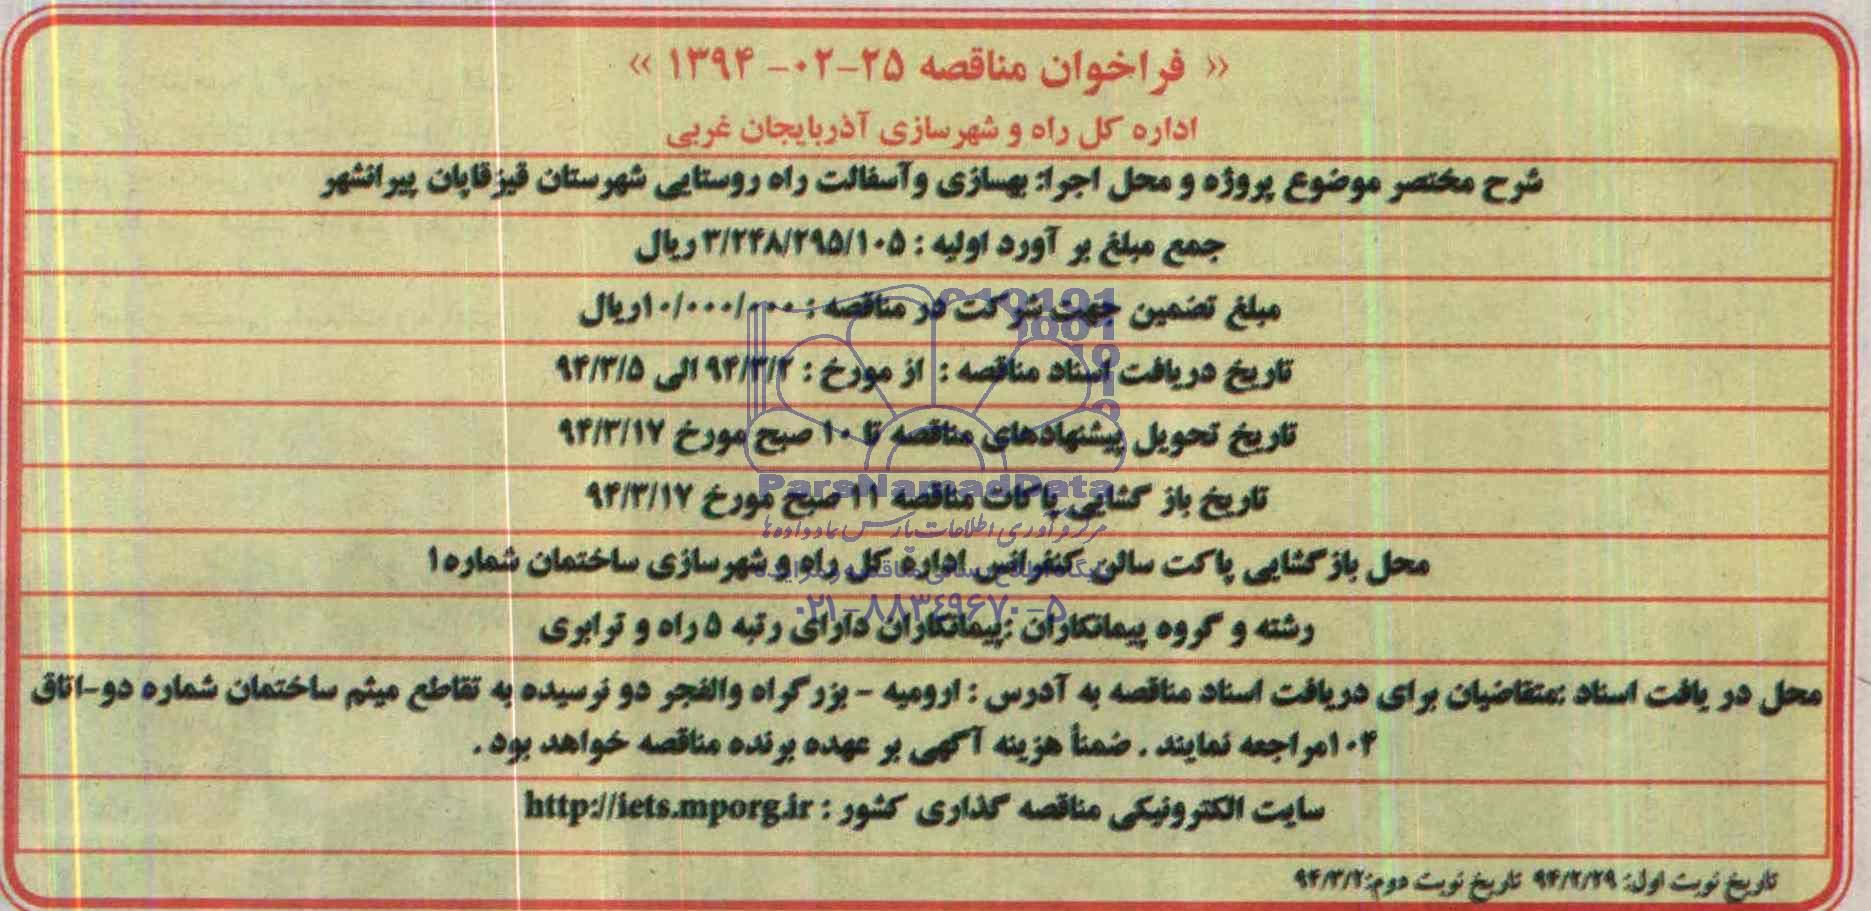 « فراخوان مناقصه ۲۵-۰۲- ۱۳۹۴ »
اداره کل راه و شهرسازی آذربایجان غربی
شرح مختصر موضوع پروژه و محل اجرا: بهسازی وآسفالت راه روستایی شهرستان قیزقاپان پیرانشهر
جمع مبلغ بر آورد اولیه : ۳/۲۴۸/۲۹۵/۱۰۵ ریال
مبلغ تضمین جهت شرکت در مناقصه : ۱۰/۰۰۰/۰۰۰ریال
تاریخ دریافت اسناد مناقصه : از مورخ : ۹۴/۳/۲ الی ۹۴/۳/۵
تاریخ تحویل پیشنهادهای مناقصه تا ۱۰ صبح مورخ ۹۴/۳/۱۷
تاریخ باز گشایی پاکات مناقصه ۱۱ صبح مورخ ۹۴/۳/۱۷
ParsNamadData
مرکز فرآوری اطلاعات پارس نماد داده ها
محل بازگشایی پاکت سالن کنفرانس اداره کل راه و شهرسازی ساختمان شماره۱
۰۲۱-۸۸۳۴۹۶۷۰-۵
رشته و گروه پیمانکاران :پیمانکاران دارای رتبه ۵ راه و ترابری
محل در یافت اسناد :متقاضیان برای دریافت اسناد مناقصه به آدرس : ارومیه - بزرگراه والفجر دو نرسیده به تقاطع میثم ساختمان شماره دو-اتاق
۱۰۴مراجعه نمایند . ضمناً هزینه آگهی بر عهده برنده مناقصه خواهد بود .
سایت الکترونیکی مناقصه گذاری کشور : http://iets.mporg.ir
تاریخ نوبت اول: ۹۴/۲/۲۹ تاریخ نوبت دوم:۹۴/۳/۲